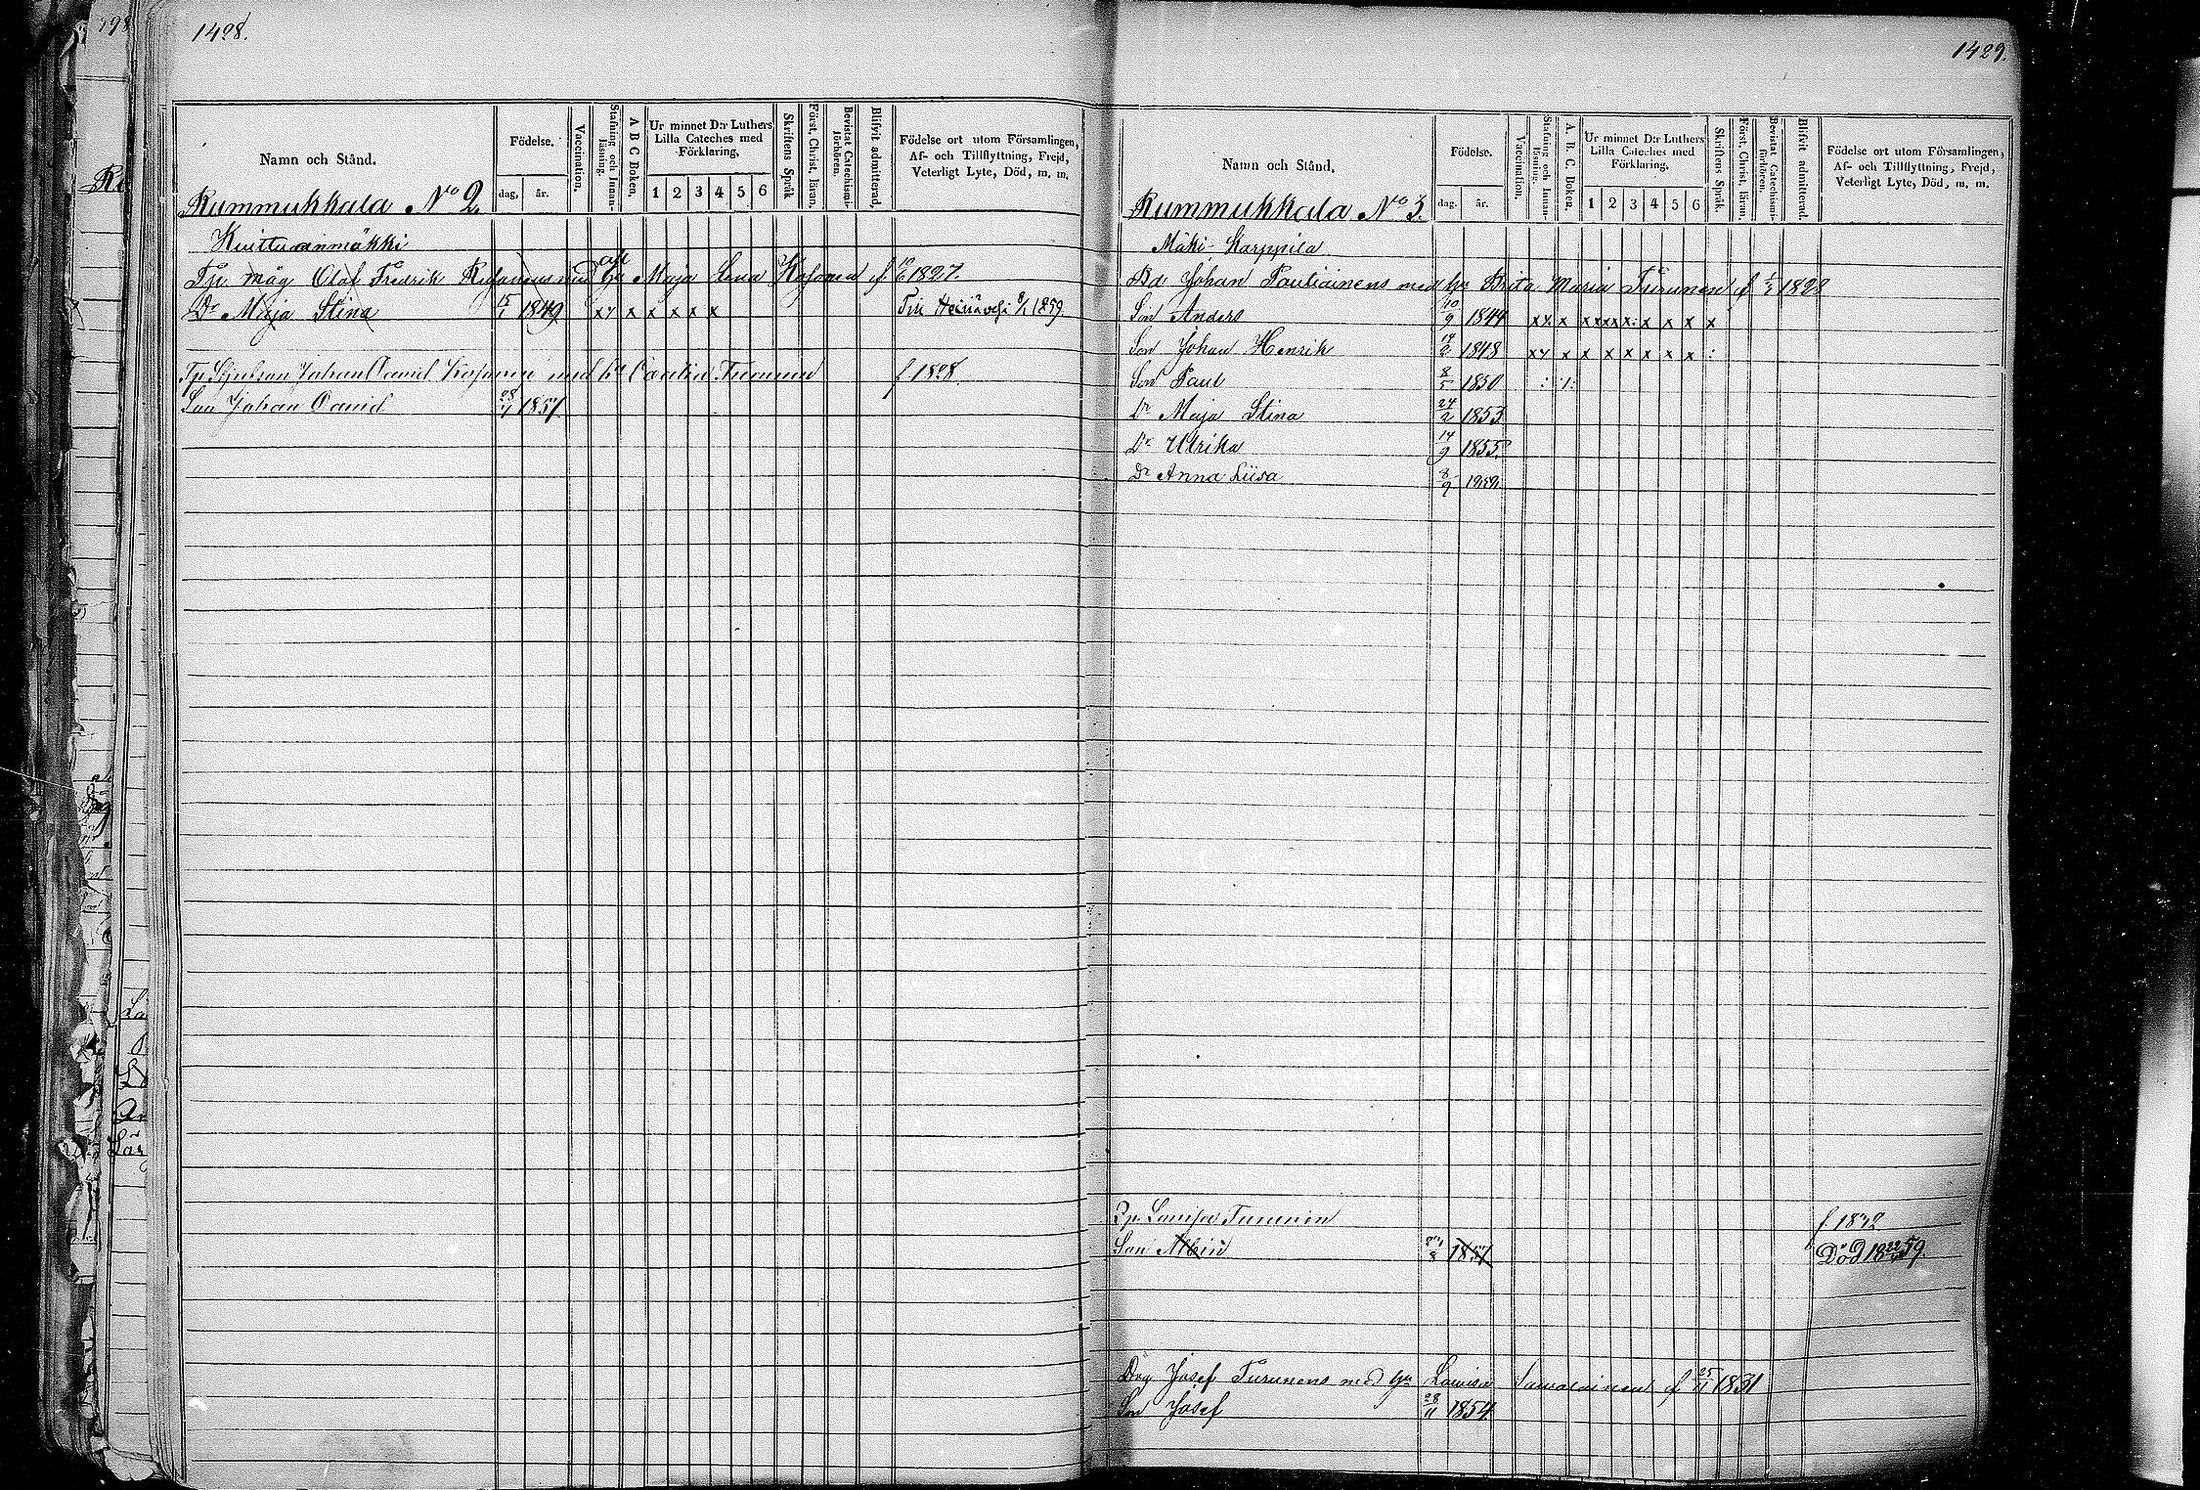 1428.
Namn och Stånd.
Födelse.
dag, år.
Vaccination.
Stafning och Innan-läsning.
A B C Boken,
Ur minnet D:r Luthers Lilla Cateches med Förklaring,
1 2 3 4 5 6
Skriftens Språk
Först, Christ, läran,
Bevistat Catechismi-förhören.
Blifvit admitterad,
Födelse ort utom Församlingen, Af- och Tillflyttning, Frejd, Veterligt Lyte, Död, m. m.
Rummukkala No 2.
Kuittuanmäkki
Tp. måg Olof Fredrik med hu Maja Lena f 1827.
Dr Maja Stina 15/1 1849 x x x x x x Till Heinävesi 1859.
Tp. Johan David med hu Turunen f 1828.
Son Johan David 28/ 1857
1429.
Namn och Stånd,
Födelse.
dag. år.
Vaccination,
Stafning och Innan-läsning.
A. B. C. Boken,
Ur minnet D:r Luthers Lilla Cateches med Förklaring,
1 2 3 4 5 6
Skriftens Språk.
Först, Christ, läran,
Bevistat Catechismi-förhören.
Blifvit admitterad
Födelse ort utom Församlingen, Af- och Tillflyttning, Frejd, Veterligt Lyte, Död, m. m.
Rummukkala No 3.
Mäki-Karppila
Bd Johan Pautiainens med hu Brita Maria Turunen f 1828
Son Anders 10/9 1844 x x x x x x x x x x x x
Son Johan Henrik 14/2 1848 x x x x x x x x x :
Son Paul 8/5 1850
Dr Maja Stina 24/2 1853
Dr Ulrika 14/9 1855
Dr Anna Liisa 8/9
Lovisa Turunen f 1832
Son Albin 1857 Död 18 59.
Drg Josef Turunens med hu Lovisa f 25/11 1831
Son Josef 28/11 1854